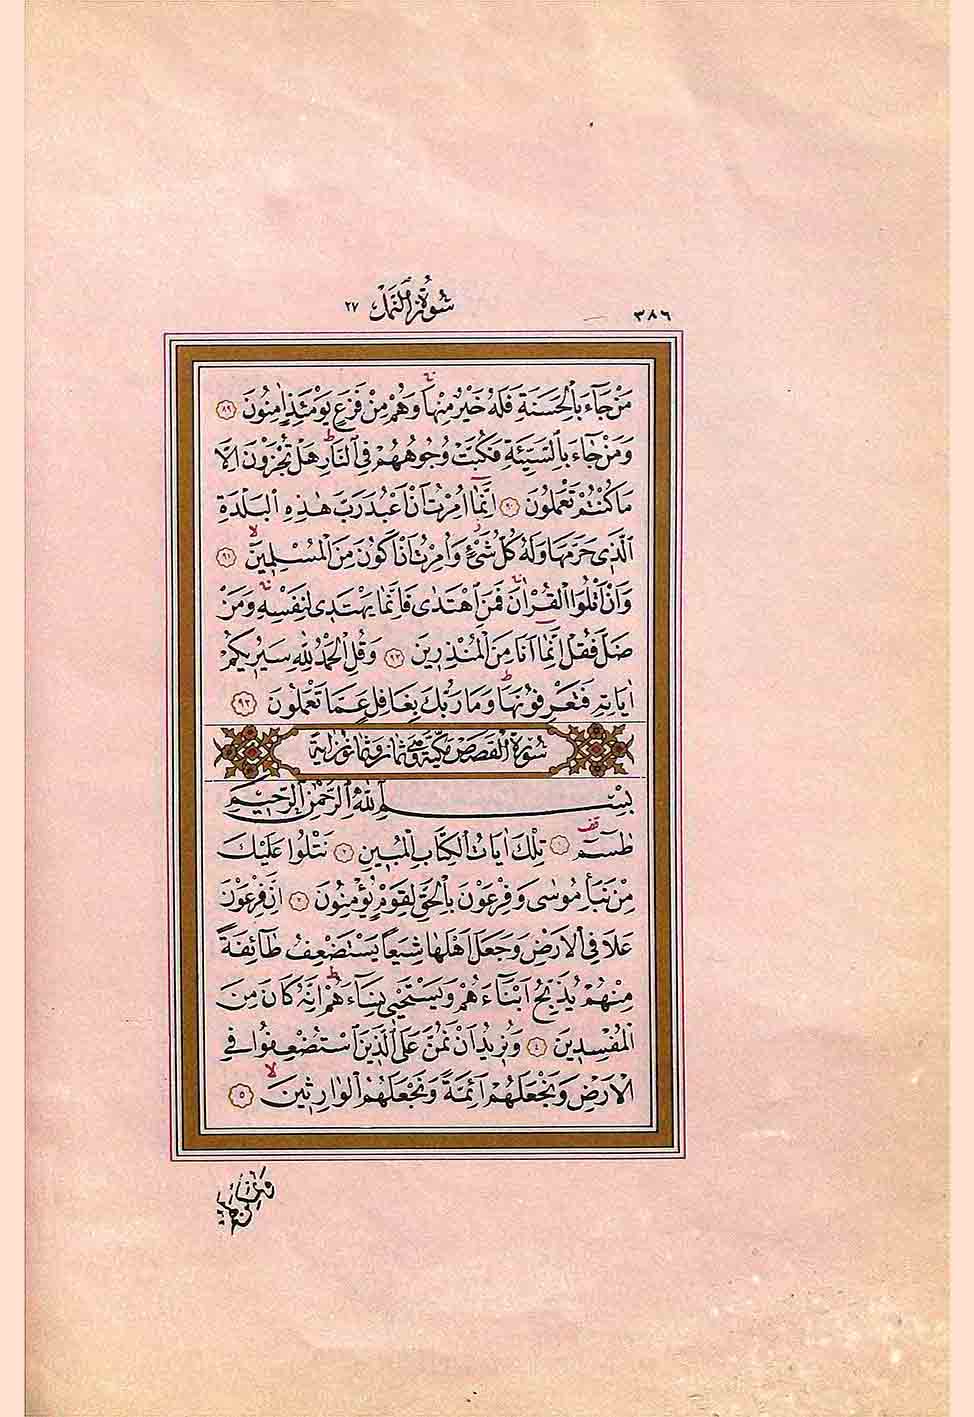 ٣٨٦
سُورَةُ النَّمْلِ ٢٧
مَنْ جَآءَ بِالْحَسَنَةِ فَلَهُ خَيْرٌ مِنْهَاۚ وَهُمْ مِنْ فَزَعٍ يَوْمَئِذٍ اٰمِنُونَ ٨٩
وَمَنْ جَآءَ بِالسَّيِّئَةِ فَكُبَّتْ وُجُوهُهُمْ فِي النَّارِۜ هَلْ تُجْزَوْنَ اِلَّا
مَا كُنْتُمْ تَعْمَلُونَ ٩٠ اِنَّمَٓا اُمِرْتُ اَنْ اَعْبُدَ رَبَّ هٰذِهِ الْبَلْدَةِ
الَّذِي حَرَّمَهَا وَلَهُ كُلُّ شَيْءٍۘ وَاُمِرْتُ اَنْ اَكُونَ مِنَ الْمُسْلِمِينَۙ ٩١
وَاَنْ اَتْلُوَا الْقُرْاٰنَۚ فَمَنِ اهْتَدٰى فَاِنَّمَا يَهْتَدِي لِنَفْسِهِۚ وَمَنْ
ضَلَّ فَقُلْ اِنَّمَٓا اَنَا مِنَ الْمُنْذِرِينَ ٩٢ وَقُلِ الْحَمْدُ لِلّٰهِ سَيُرِيكُمْ
اٰيَاتِهِ فَتَعْرِفُونَهَاۜ وَمَا رَبُّكَ بِغَافِلٍ عَمَّا تَعْمَلُونَ ٩٣
سُورَةُ الْقَصَصِ مَكِّيَّةٌ وَهِيَ ثَمَانٍ وَثَمَانُونَ اٰيَةً
بِسْمِ اللّٰهِ الرَّحْمٰنِ الرَّحِيمِ
طٰسٓمٓ قف ١ تِلْكَ اٰيَاتُ الْكِتَابِ الْمُبِينِ ٢ نَتْلُوا عَلَيْكَ
مِنْ نَبَاِ مُوسٰى وَفِرْعَوْنَ بِالْحَقِّ لِقَوْمٍ يُؤْمِنُونَ ٣ اِنَّ فِرْعَوْنَ
عَلَا فِي الْاَرْضِ وَجَعَلَ اَهْلَهَا شِيَعًا يَسْتَضْعِفُ طَآئِفَةً
مِنْهُمْ يُذَبِّحُ اَبْنَآءَهُمْ وَيَسْتَحْيِي نِسَآءَهُمْۜ اِنَّهُ كَانَ مِنَ
الْمُفْسِدِينَ ٤ وَنُرِيدُ اَنْ نَمُنَّ عَلَى الَّذِينَ اسْتُضْعِفُوا فِي
الْاَرْضِ وَنَجْعَلَهُمْ اَئِمَّةً وَنَجْعَلَهُمُ الْوَارِثِينَۙ ٥